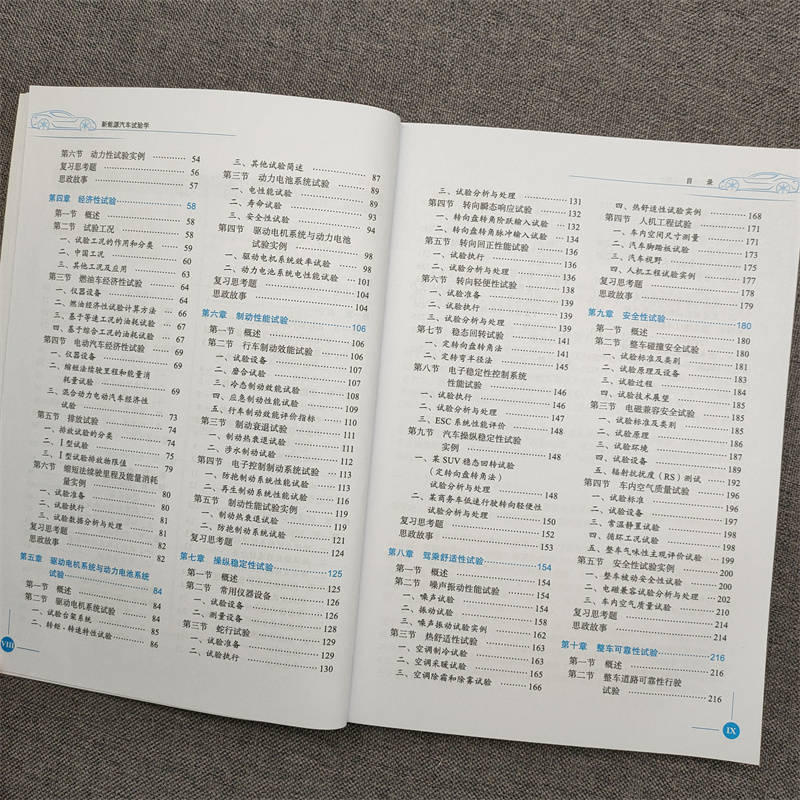 新能源汽车试验学
第六节 动力性试验实例 ………… 54
复习思考题 ………… 56
思政故事 ………… 57
第四章 经济性试验 ………… 58
第一节 概述 ………… 58
第二节 试验工况 ………… 59
一、试验工况的作用和分类 ………… 59
二、中国工况 ………… 60
三、其他工况及应用 ………… 63
第三节 燃油车经济性试验 ………… 64
一、仪器设备 ………… 64
二、燃油经济性试验计算方法 ………… 66
三、基于等速工况的油耗试验 ………… 67
四、基于综合工况的油耗试验 ………… 67
第四节 电动汽车经济性试验 ………… 69
一、仪器设备 ………… 69
二、缩短法续驶里程和能量消
耗量试验 ………… 69
三、混合动力电动汽车经济性
试验 ………… 73
第五节 排放试验 ………… 74
一、排放试验的分类 ………… 74
二、Ⅰ型试验 ………… 75
三、Ⅰ型试验排放物限值 ………… 79
第六节 缩短法续驶里程及能量消耗
量实例 ………… 80
一、试验准备 ………… 80
二、试验执行 ………… 81
三、试验数据分析与处理 ………… 81
复习思考题 ………… 82
思政故事 ………… 82
第五章 驱动电机系统与动力电池系统
试验 ………… 84
第一节 概述 ………… 84
第二节 驱动电机系统试验 ………… 84
一、试验台架系统 ………… 85
二、转矩-转速特性试验 ………… 86
三、其他试验简述 ………… 87
第三节 动力电池系统试验 ………… 89
一、电性能试验 ………… 89
二、寿命试验 ………… 93
三、安全性试验 ………… 94
第四节 驱动电机系统与动力电池
试验实例 ………… 98
一、驱动电机系统效率试验 ………… 98
二、动力电池系统电性能试验 ………… 101
复习思考题 ………… 104
思政故事 ………… 104
第六章 制动性能试验 ………… 106
第一节 概述 ………… 106
第二节 行车制动效能试验 ………… 106
一、试验设备 ………… 107
二、磨合试验 ………… 107
三、冷态制动效能试验 ………… 108
四、应急制动性能试验 ………… 109
五、行车制动效能评价指标 ………… 110
第三节 制动衰退试验 ………… 111
一、制动热衰退试验 ………… 111
二、涉水制动试验 ………… 112
第四节 电子控制制动系统试验 ………… 113
一、防抱制动系统性能试验 ………… 113
二、再生制动系统性能试验 ………… 116
第五节 制动性能试验实例 ………… 119
一、制动热衰退试验 ………… 119
二、防抱制动系统试验 ………… 121
复习思考题 ………… 124
第七章 操纵稳定性试验 ………… 125
第一节 概述 ………… 125
第二节 常用仪器设备 ………… 126
一、试验设备 ………… 126
二、测量设备 ………… 128
第三节 蛇行试验 ………… 129
一、试验准备 ………… 129
二、试验执行 ………… 130
VIII
目 录
三、试验分析与处理 ………… 131
第四节 转向瞬态响应试验 ………… 132
一、转向盘转角阶跃输入试验 ………… 132
二、转向盘转角脉冲输入试验 ………… 134
第五节 转向回正性能试验 ………… 136
一、试验执行 ………… 136
二、试验分析与处理 ………… 136
第六节 转向轻便性试验 ………… 138
一、试验准备 ………… 139
二、试验执行 ………… 139
三、试验分析与处理 ………… 139
第七节 稳态回转试验 ………… 141
一、定转向盘转角法 ………… 141
二、定转弯半径法 ………… 145
第八节 电子稳定性控制系统
性能试验 ………… 146
一、试验执行 ………… 146
二、试验分析与处理 ………… 147
三、ESC 系统性能评价 ………… 148
第九节 汽车操纵稳定性试验
实例 ………… 148
一、某 SUV 稳态回转试验
（定转向盘转角法）
试验分析与处理 ………… 148
二、某商务车低速行驶转向轻便性
试验分析与处理 ………… 150
复习思考题 ………… 152
思政故事 ………… 153
第八章 驾乘舒适性试验 ………… 154
第一节 概述 ………… 154
第二节 噪声振动性能试验 ………… 154
一、噪声试验 ………… 154
二、振动试验 ………… 158
三、噪声振动试验实例 ………… 162
第三节 热舒适性试验 ………… 163
一、空调制冷试验 ………… 163
二、空调采暖试验 ………… 165
三、空调除霜和除雾试验 ………… 166
四、热舒适性试验实例 ………… 168
第四节 人机工程试验 ………… 171
一、车内空间尺寸测量 ………… 171
二、汽车脚踏板试验 ………… 173
三、汽车视野 ………… 175
四、人机工程试验实例 ………… 177
复习思考题 ………… 178
思政故事 ………… 179
第九章 安全性试验 ………… 180
第一节 概述 ………… 180
第二节 整车碰撞安全试验 ………… 180
一、试验标准及类别 ………… 181
二、试验原理及设备 ………… 182
三、试验过程 ………… 184
四、试验技术展望 ………… 186
第三节 电磁兼容安全试验 ………… 187
一、试验标准及类别 ………… 187
二、试验原理 ………… 187
三、试验环境 ………… 187
四、试验设备 ………… 189
五、辐射抗扰度（RS）测试 ………… 192
第四节 车内空气质量试验 ………… 196
一、试验标准 ………… 196
二、试验设备 ………… 197
三、常温静置试验 ………… 198
四、循环工况试验 ………… 198
五、整车气味性主观评价试验 ………… 199
第五节 安全性试验实例 ………… 200
一、整车被动安全性试验 ………… 200
二、电磁兼容试验分析与处理 ………… 202
三、车内空气质量试验 ………… 210
复习思考题 ………… 214
思政故事 ………… 214
第十章 整车可靠性试验 ………… 216
第一节 概述 ………… 216
第二节 整车道路可靠性行驶
试验 ………… 216
IX